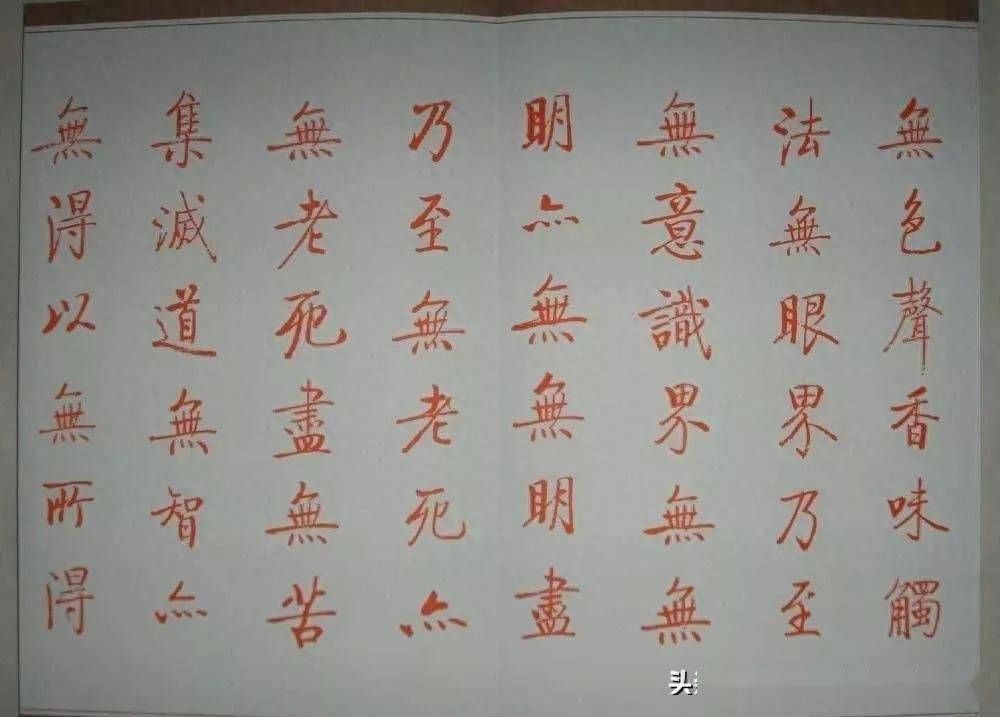 無色聲香味觸
法無眼界乃至
無意識界無無
明亦無無明盡
乃至無老死亦
無老死盡無苦
集滅道無智亦
無得以無所得
头